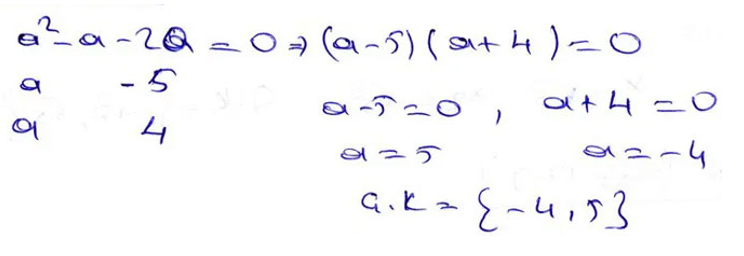 a² - a - 20 = 0 ⇒ (a - 5) (a + 4) = 0
a - 5
a 4
a - 5 = 0 , a + 4 = 0
a = 5 a = -4
Ç.K = {-4, 5}